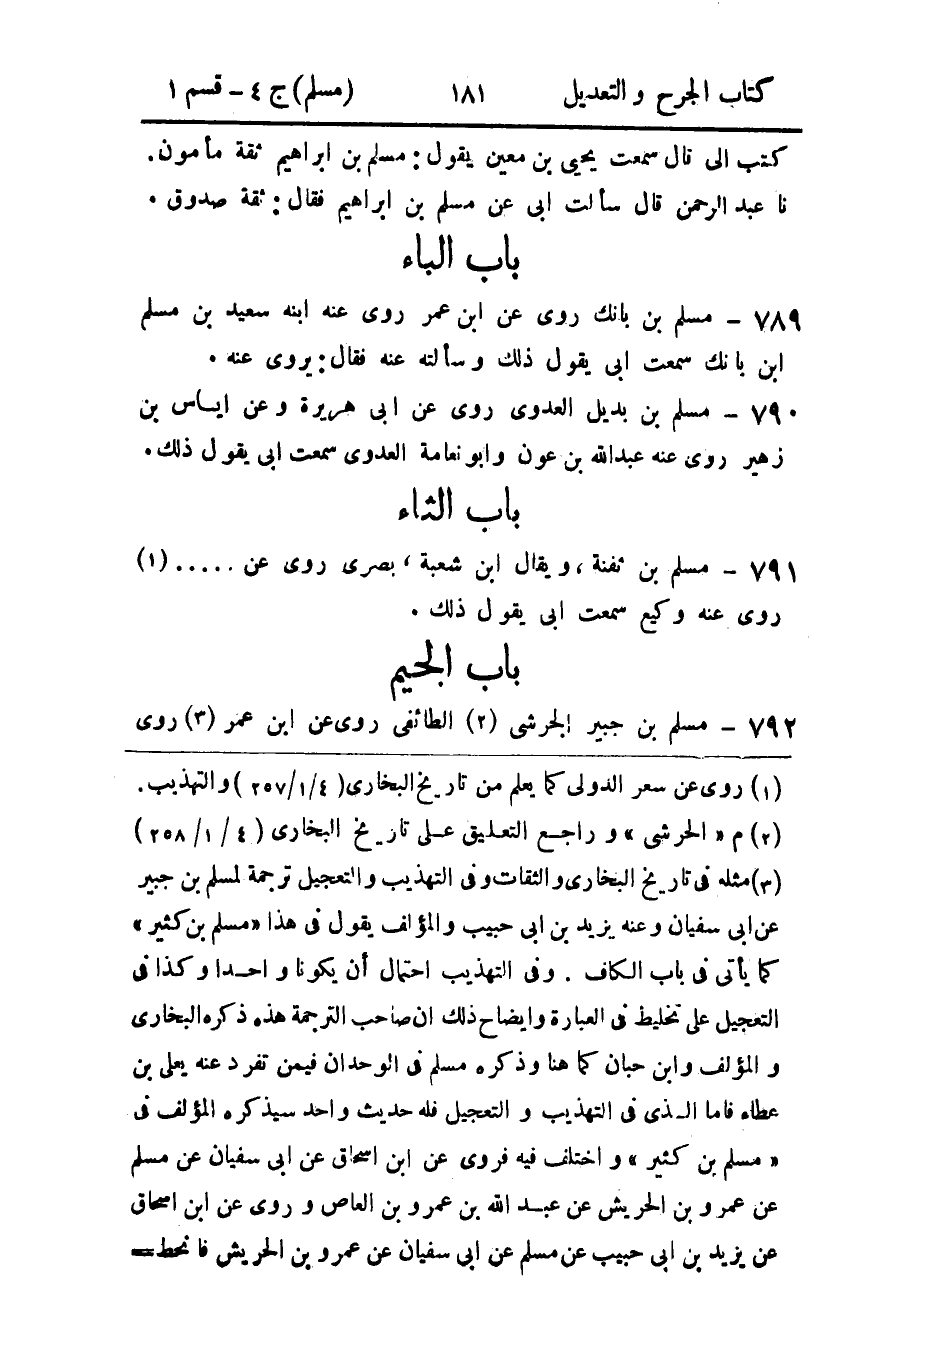 كتاب الجرح والتعديل ١٨١ (مسلم) ج ٤ - قسم ١
كتب الى قال سمعت يحيى بن معين يقول: مسلم بن ابراهيم ثقة مأمون.
نا عبد الرحمن قال سألت ابى عن مسلم بن ابراهيم فقال: ثقة صدوق .
باب الباء
٧٨٩ - مسلم بن بانك روى عن ابن عمر روى عنه ابنه سعيد بن مسلم
ابن بانك سمعت ابى يقول ذلك وسألته عنه فقال: يروى عنه .
٧٩٠ - مسلم بن بديل العدوى روى عن ابى هريرة وعن اياس بن
زهير روى عنه عبدالله بن عون وابو نعامة العدوى سمعت ابى يقول ذلك.
باب الثاء
٧٩١ - مسلم بن ثفنة ، ويقال ابن شعبة ، بصرى روى عن ..... (١)
روى عنه وكيع سمعت ابى يقول ذلك .
باب الجيم
٧٩٢ - مسلم بن جبير الجرشى (٢) الطائفى روى عن ابن عمر (٣) روى
(١) روى عن سعر الدولى كما يعلم من تاريخ البخارى (٤/١/٢٥٧) والتهذيب.
(٢) م «الحرشى» وراجع التعليق على تاريخ البخارى (٤/١/٢٥٨)
(٣) مثله فى تاريخ البخارى والثقات وفى التهذيب والتعجيل ترجمة لمسلم بن جبير
عن ابى سفيان وعنه يزيد بن ابى حبيب والمؤلف يقول فى هذا «مسلم بن كثير»
كما يأتى فى باب الكاف . وفى التهذيب احتمال أن يكونا واحدا وكذا فى
التعجيل على تخليط فى العبارة وايضاح ذلك ان صاحب الترجمة هذه ذكره البخارى
والمؤلف وابن حبان كما هنا وذكره مسلم فى الوحدان فيمن تفرد عنه يعلى بن
عطاء فاما الذى فى التهذيب والتعجيل فله حديث واحد سيذكره المؤلف فى
« مسلم بن كثير » واختلف فيه فروى عن ابن اسحاق عن ابى سفيان عن مسلم
عن عمرو بن الحريش عن عبد الله بن عمرو بن العاص وروى عن ابن اسحاق
عن يزيد بن ابى حبيب عن مسلم عن ابى سفيان عن عمرو بن الحريش فانحط=